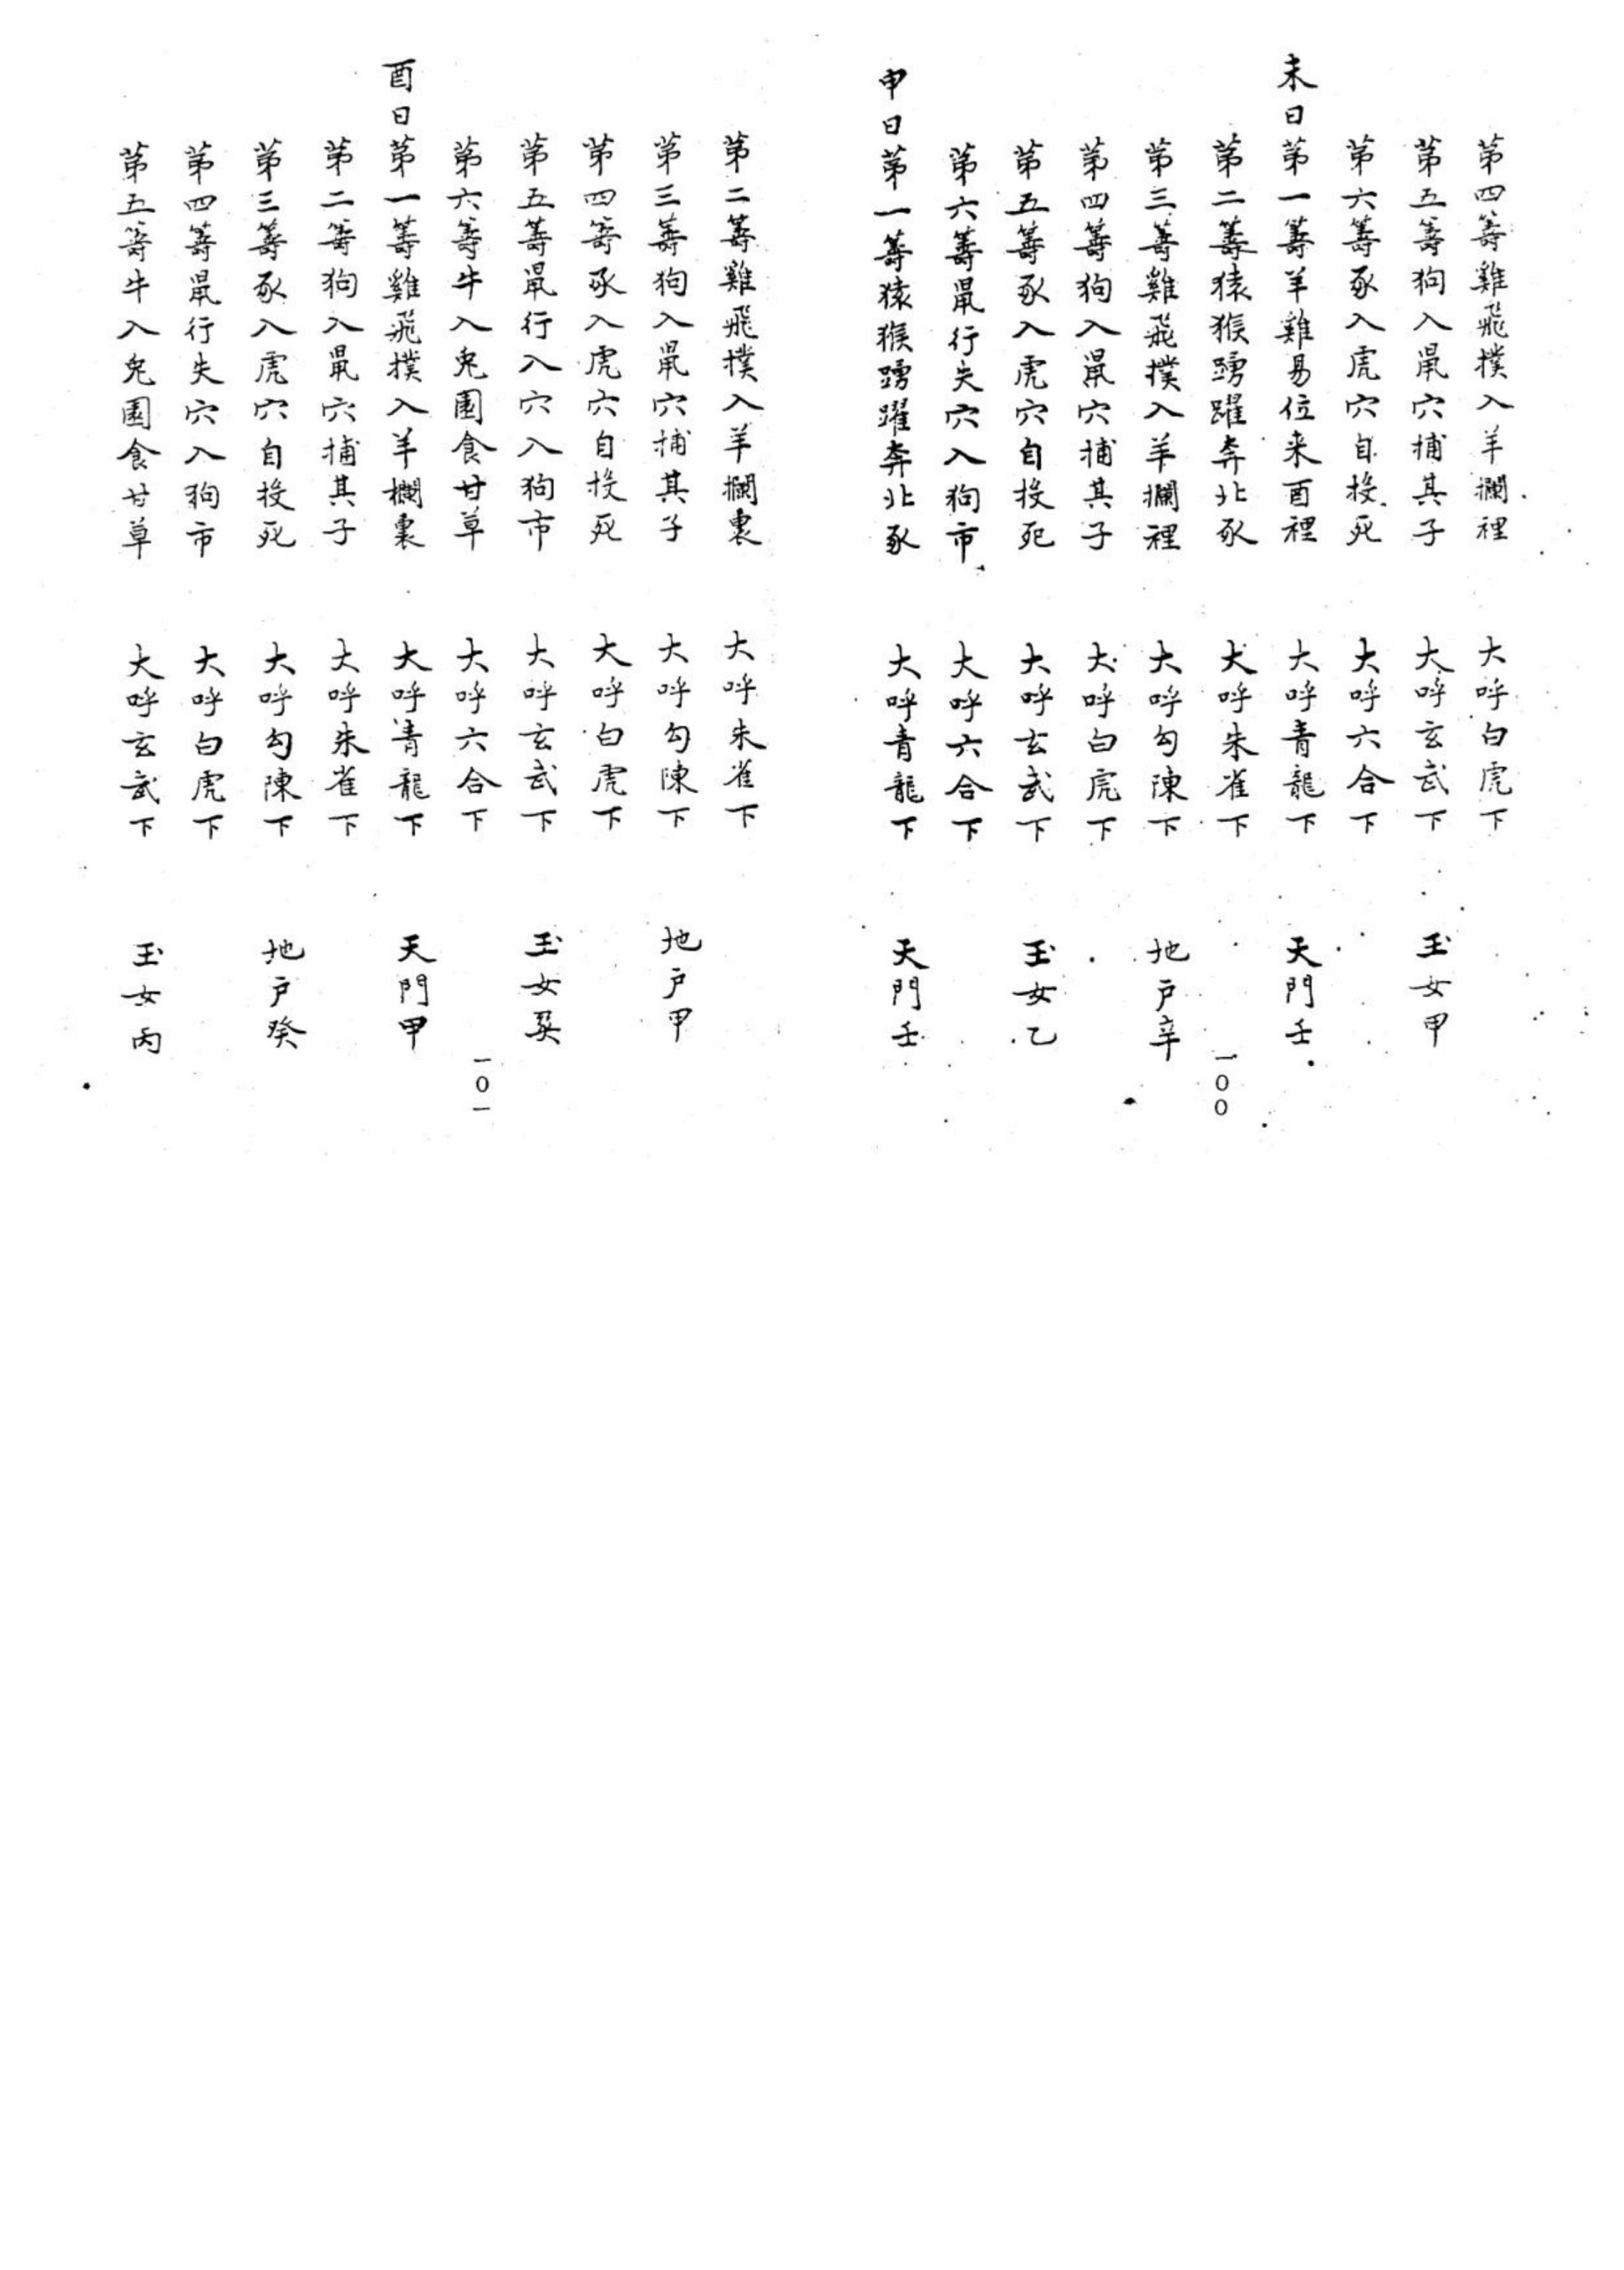 第四籌雞飛撲入羊欄裡　大呼白虎下
第五籌狗入鼠穴捕其子　大呼玄武下　玉女甲
第六籌豕入虎穴自投死　大呼六合下
未日第一籌羊雞易位來酉裡　大呼青龍下　天門壬
第二籌猿猴踴躍奔北豕　大呼朱雀下
第三籌雞飛撲入羊欄裡　大呼勾陳下　地戶辛
第四籌狗入鼠穴捕其子　大呼白虎下
第五籌豕入虎穴自投死　大呼玄武下　玉女乙
第六籌鼠行失穴入狗市　大呼六合下
申日第一籌猿猴踴躍奔北豕　大呼青龍下　天門壬
一00
第二籌雞飛撲入羊欄裏　大呼朱雀下
第三籌狗入鼠穴捕其子　大呼勾陳下　地戶甲
第四籌豕入虎穴自投死　大呼白虎下
第五籌鼠行入穴入狗市　大呼玄武下　玉女巽
第六籌牛入兔園食甘草　大呼六合下
酉日第一籌雞飛撲入羊欄裏　大呼青龍下　天門甲
第二籌狗入鼠穴捕其子　大呼朱雀下
第三籌豕入虎穴自投死　大呼勾陳下　地戶癸
第四籌鼠行失穴入狗市　大呼白虎下
第五籌牛入兔園食甘草　大呼玄武下　玉女丙
一0一